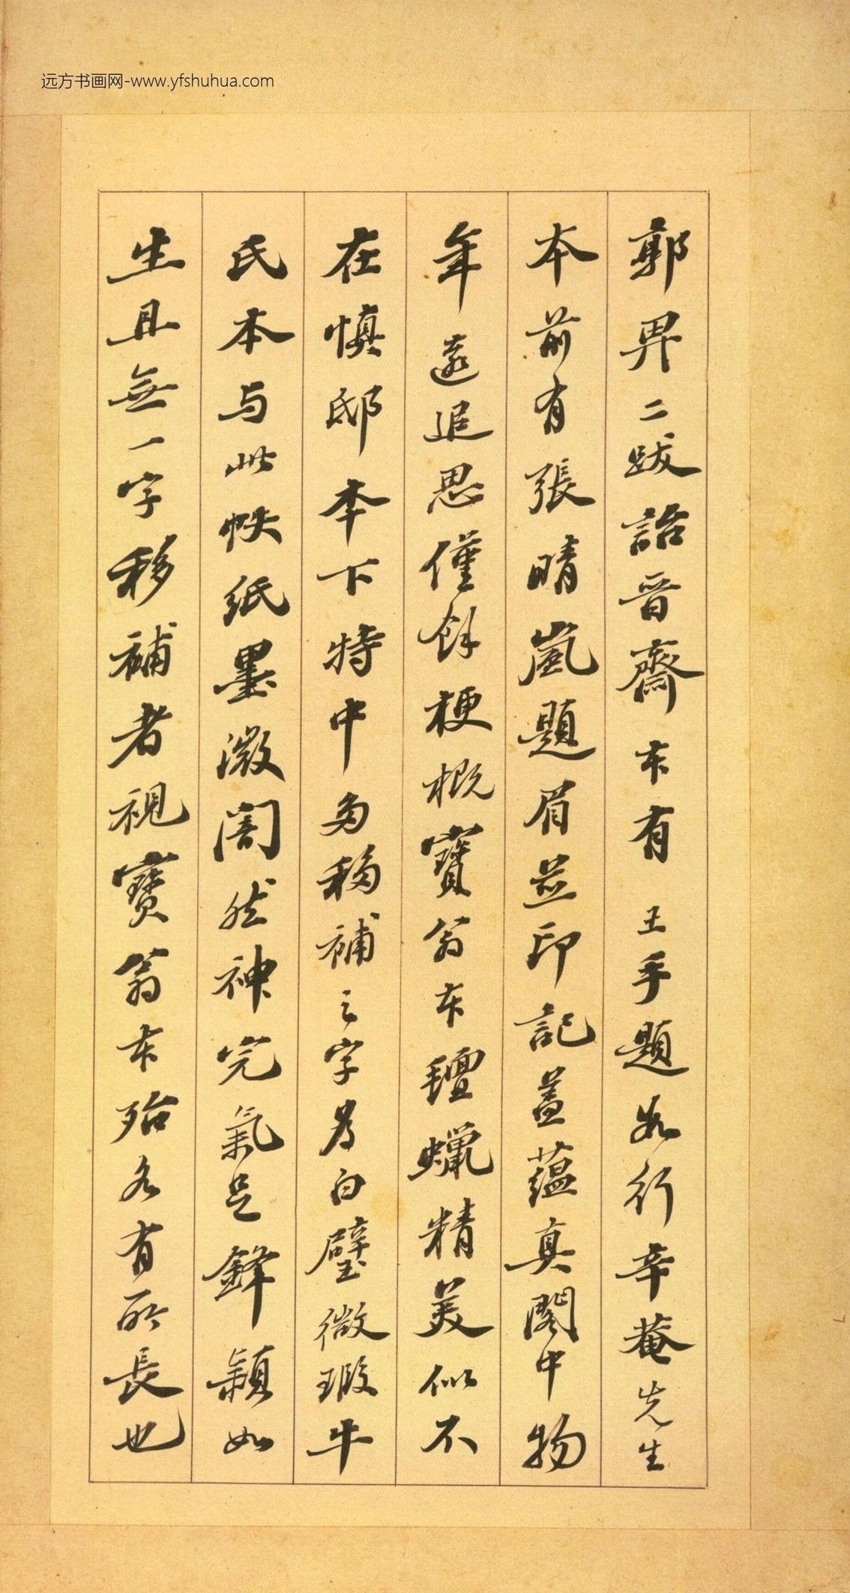 远方书画网-www.yfshuhua.com
郭畀二跋詒晋齋本有王手題數行辛菴先生
本前有張晴嵐題眉並印記蓋蘊真閣中物
年遠追思僅餘梗概寶翁本氊蠟精美似不
在慎邸本下特中多移補之字為白璧微瑕牛
氏本与此帙紙墨澂闇然神完氣足鋒穎如
生且無一字移補者視寶翁本殆各有所長也